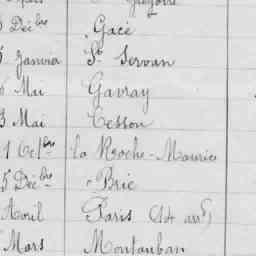 Grégoire
5 Décbre Gacé
5 Janvier St Servan
6 Mai Gavray
3 Mai Cesson
1 Octbre la Roche-Maurice
5 Décbre Brie
Avril Paris (14 arrt)
Mars Montauban